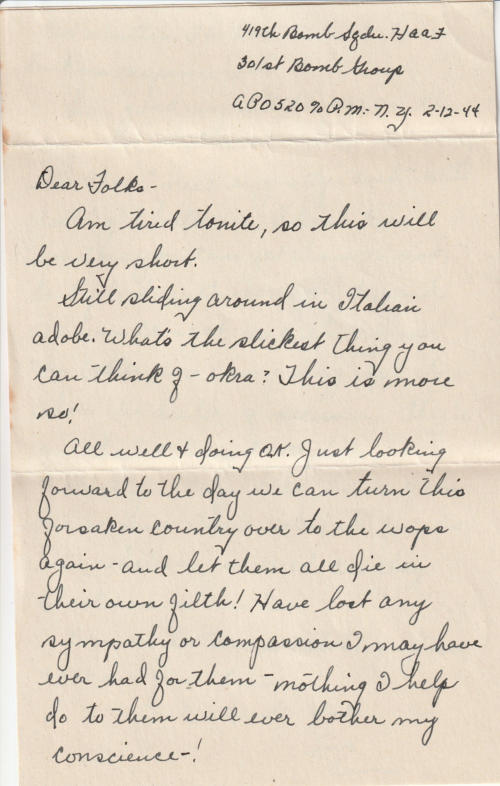 419th Bomb Sqdn. HAAF
301st Bomb Group
APO 520 % P.M. - N.Y. 2-12-44
Dear Folks -
Am tired tonite, so this will
be very short.
Still sliding around in Italian
adobe. What's the slickest thing you
can think of - okra? This is more
so!
All well & doing OK. Just looking
forward to the day we can turn this
forsaken country over to the wops
again - and let them all die in
their own filth! Have lost any
sympathy or compassion I may have
ever had for them - nothing I help
do to them will ever bother my
conscience - !